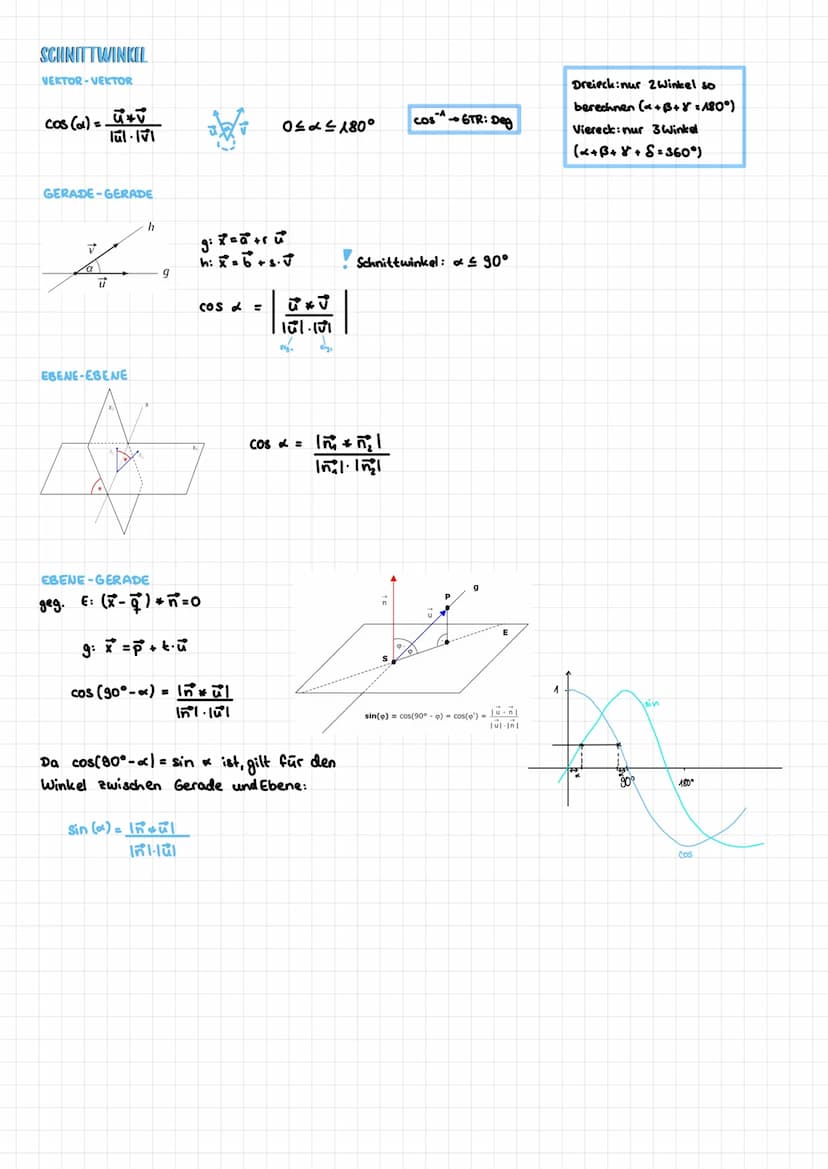 SCHNITTWINKEL
VEKTOR-VEKTOR
cos(α) = u⃗ * v⃗ / |u⃗| · |v⃗|
u⃗ v⃗
0 ≤ α ≤ 180°
cos⁻¹ → GTR: Deg
Dreieck: nur 2 Winkel so
berechnen (α + β + γ = 180°)
Viereck: nur 3 Winkel
(α + β + γ + δ = 360°)
GERADE-GERADE
h
v⃗
α
g
u⃗
g: x⃗ = a⃗ + r u⃗
h: x⃗ = b⃗ + s · v⃗
! Schnittwinkel: α ≤ 90°
cos α = | u⃗ * v⃗ / |u⃗| · |v⃗| |
EBENE-EBENE
cos α = |n₁⃗ * n₂⃗| / |n₁⃗| · |n₂⃗|
EBENE-GERADE
geg. E: (x⃗ - q⃗) * n⃗ = 0
g: x⃗ = p⃗ + t · u⃗
cos (90° - α) = |n⃗ * u⃗| / |n⃗| · |u⃗|
n⃗
u⃗
P
g
E
S
φ' φ
sin(φ) = cos(90° - φ) = cos(φ') = |u⃗ · n⃗| / |u⃗| · |n⃗|
Da cos(90° - α) = sin α ist, gilt für den
Winkel zwischen Gerade und Ebene:
sin (α) = |n⃗ * u⃗| / |n⃗| · |u⃗|
1
sin
α
90°
180°
cos